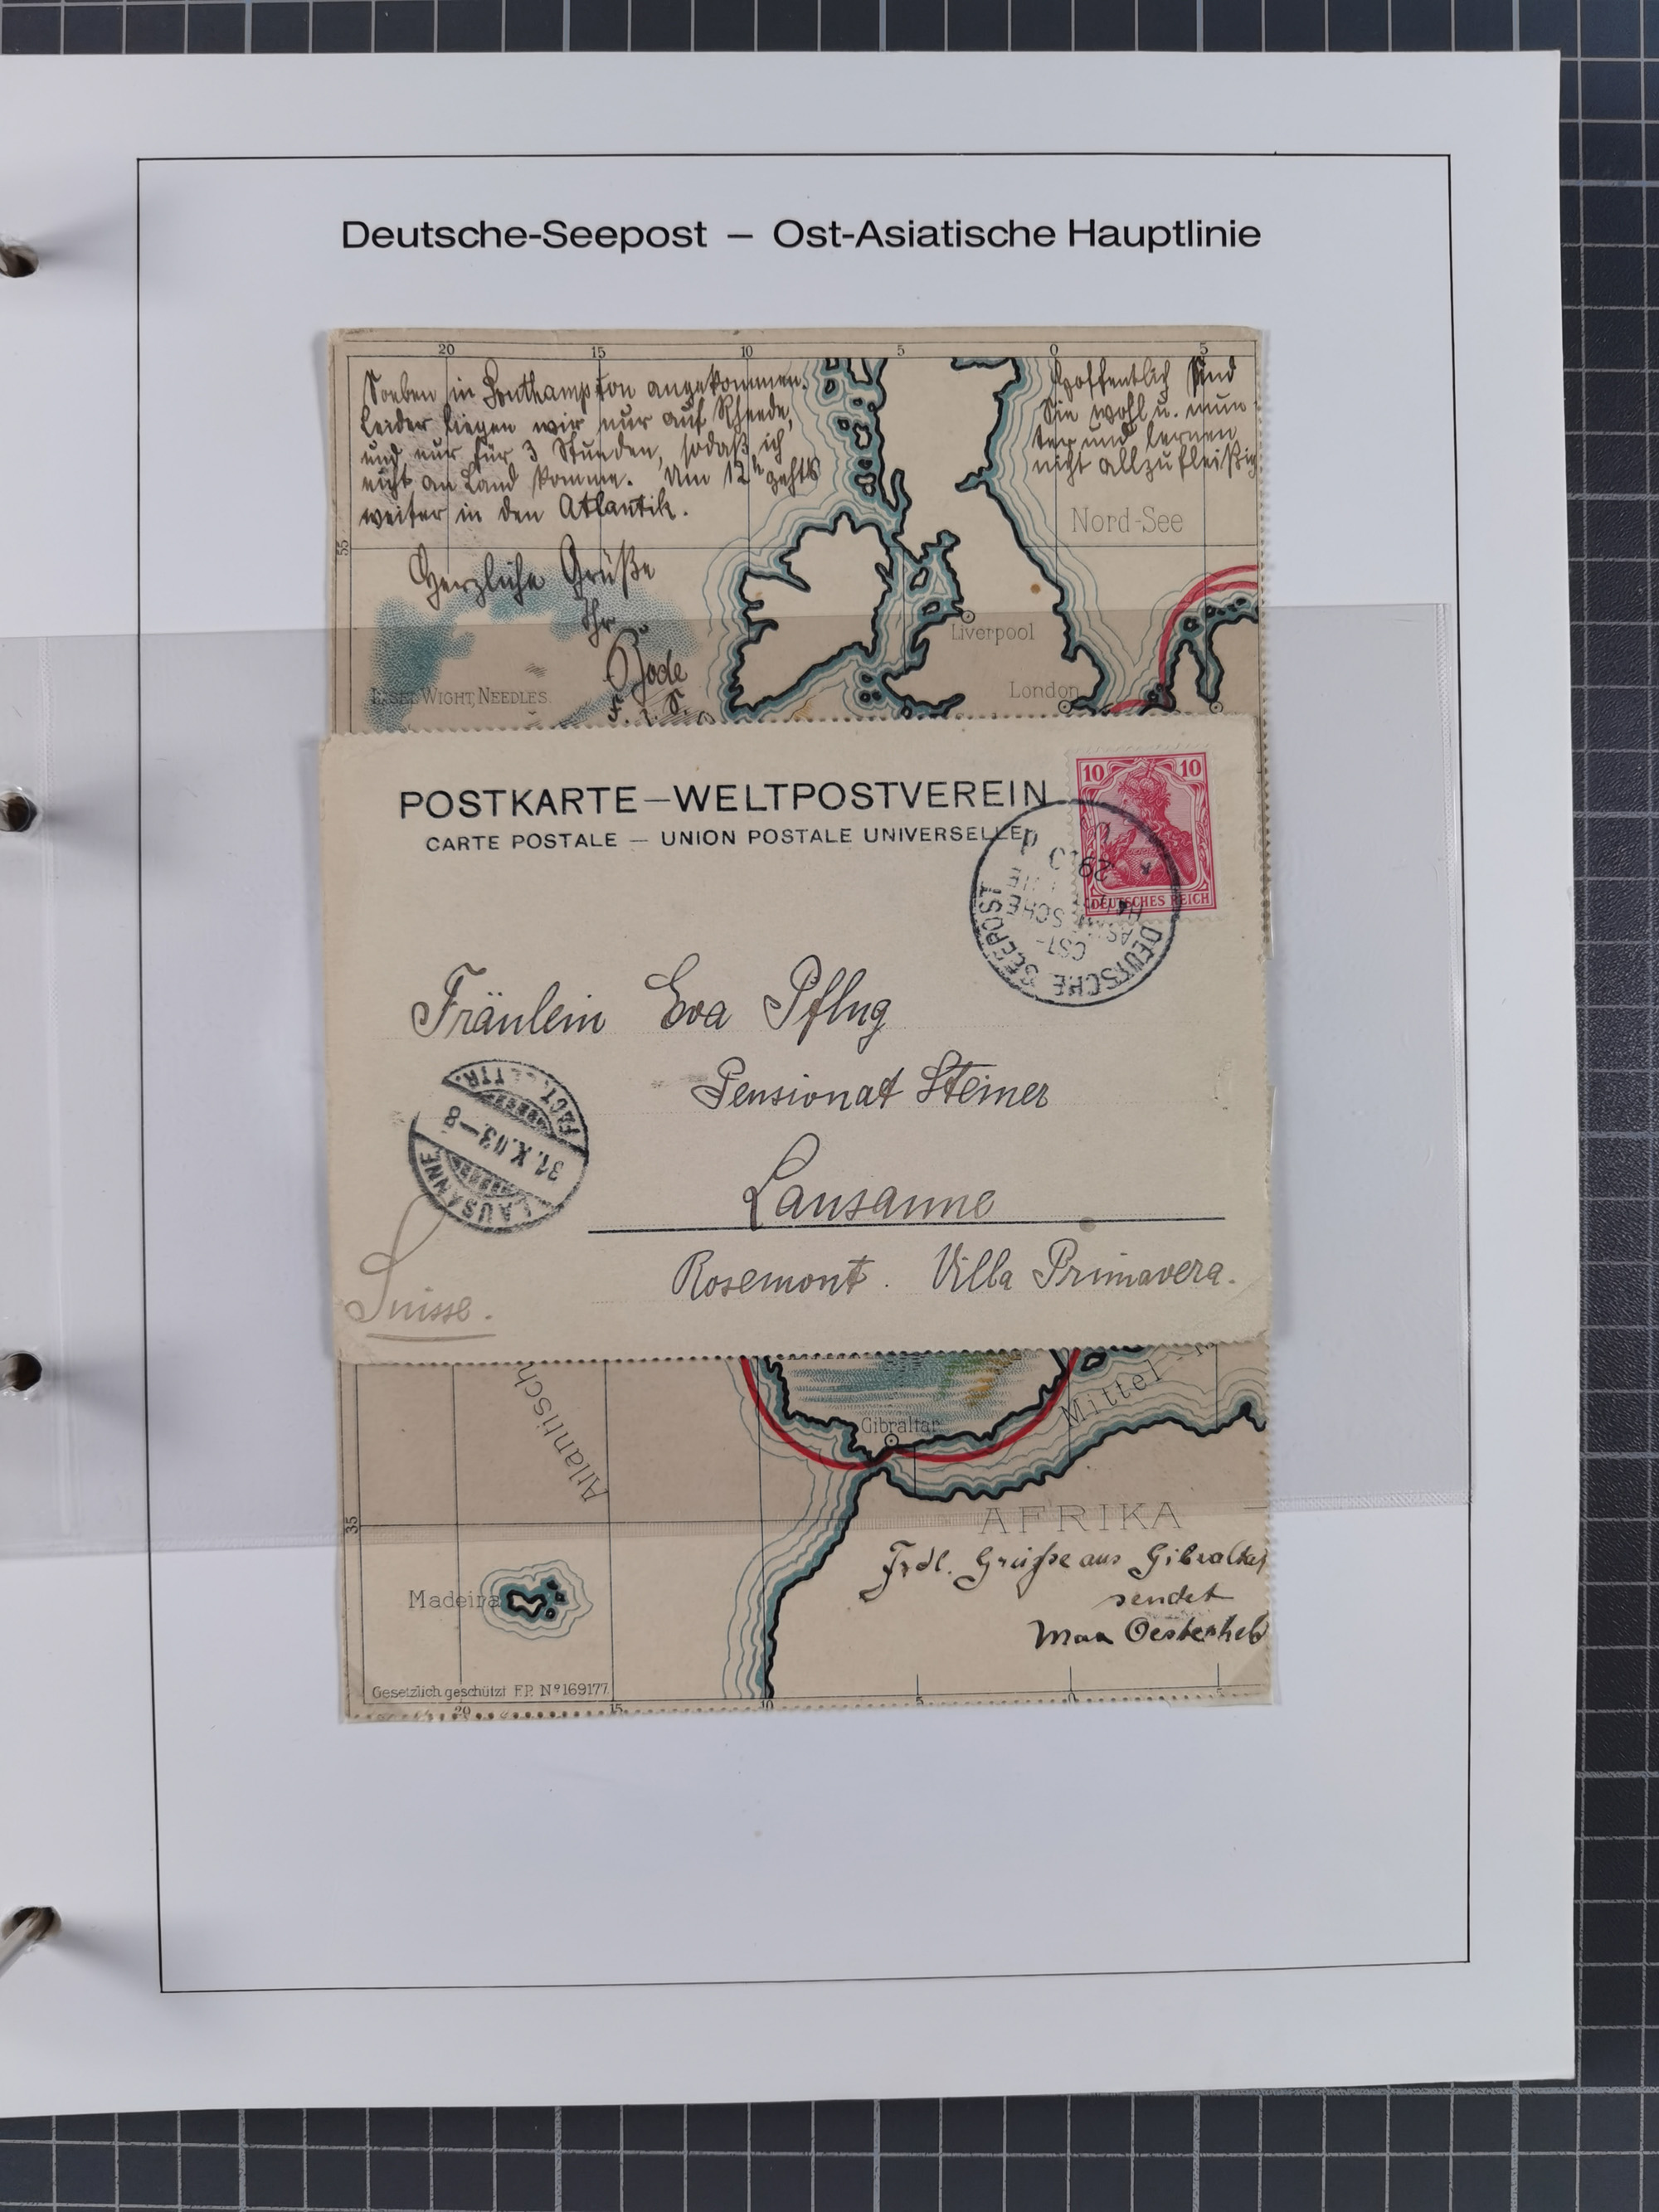 Deutsche-Seepost – Ost-Asiatische Hauptlinie
20 15 10 5 0 5
Soeben in Southampton angekommen.
Leider liegen wir nur auf Rheede,
und nur für 3 Stunden, sodaß ich
nicht an Land komme. Um 12h gehts
weiter in den Atlantik.
Herzliche Grüße
Ihr
Bode
Hoffentlich sind
Sie wohl u. mun-
ter und lernen
nicht allzu fleißig.
Nord-See
55
Liverpool
London
Insel Wight, Needles
POSTKARTE – WELTPOSTVEREIN
CARTE POSTALE – UNION POSTALE UNIVERSELLE
10 10
DEUTSCHES REICH
DEUTSCHE SEEPOST
OST-
ASIATISCHE
29
Fräulein Eva Pflug
Pensionat Steiner
Lausanne
Rosemont. Villa Primavera.
Suisse.
LAUSANNE
31.X.03–8
FACT. LETTR.
Atlantisch
Gibraltar
Mittel-
35
AFRIKA
Madeira
Frdl. Grüsse aus Gibraltar
sendet
Max
Gesetzlich geschützt F.P. No 169177
20 15 10 5 0 5